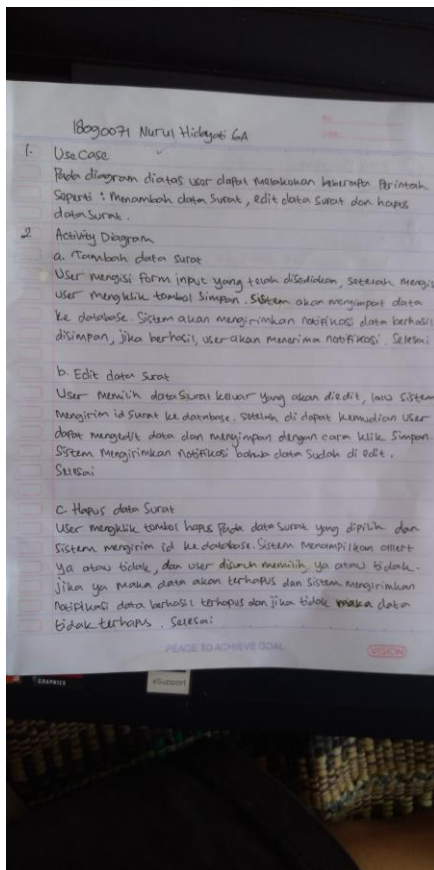 18090071 Nurul Hidayati 6A
1. Use Case
Pada diagram diatas user dapat melakukan beberapa Perintah
Seperti : Menambah data Surat, edit data surat dan hapus
data surat.
2. Activity Diagram
a. Tambah data surat
User mengisi form input yang telah disediakan, setelah mengisi
user mengklik tombol Simpan. Sistem akan menyimpat data
ke database. Sistem akan mengirimkan notifikasi data berhasil
disimpan, jika berhasil, user akan menerima notifikasi. Selesai
b. Edit data surat
User memilih data Surat keluar yang akan diedit, lalu Sistem
Mengirim id surat ke database. Setelah di dapat kemudian user
dapat mengedit data dan menyimpan dengan cara klik Simpan.
Sistem Mengirimkan Notifikasi bahwa data sudah di edit.
Selesai
C. Hapus data Surat
User mengklik tombol hapus Pada data Surat yang dipilih dan
Sistem mengirim id ke database. Sistem menampilkan allert
ya atau tidak, dan user disuruh memilih ya atau tidak.
jika ya maka data akan terhapus dan sistem mengirimkan
Notifikasi data berhasil terhapus dan jika tidak maka data
tidak terhapus. Selesai
PEACE TO ACHIEVE GOAL
VISION
GRAPHICS
eSupport